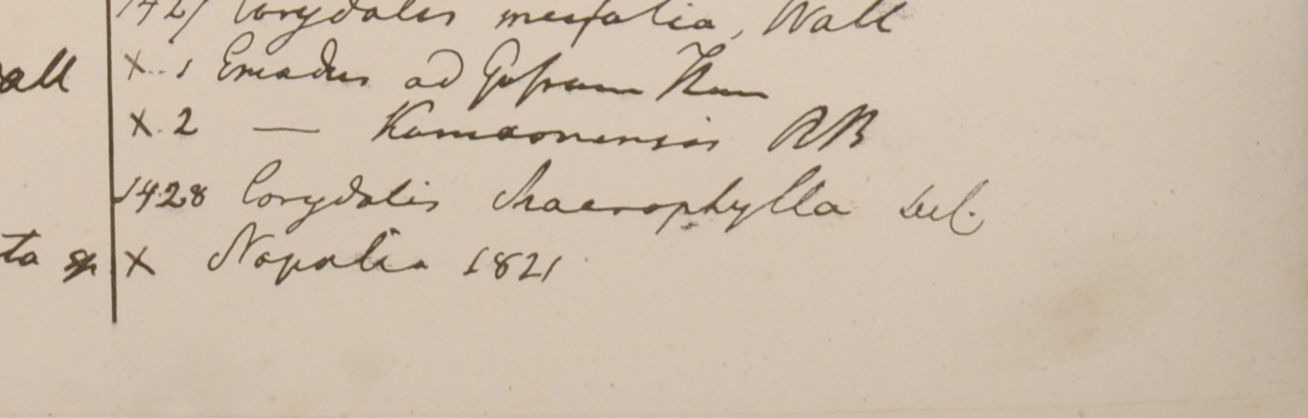 1427 Corydalis meifolia, Wall
all x..1 Emodus ad Gosam Than
x.2 — Kamaonensis RB
1428 Corydalis chaerophylla del.
ta x Napalia 1821